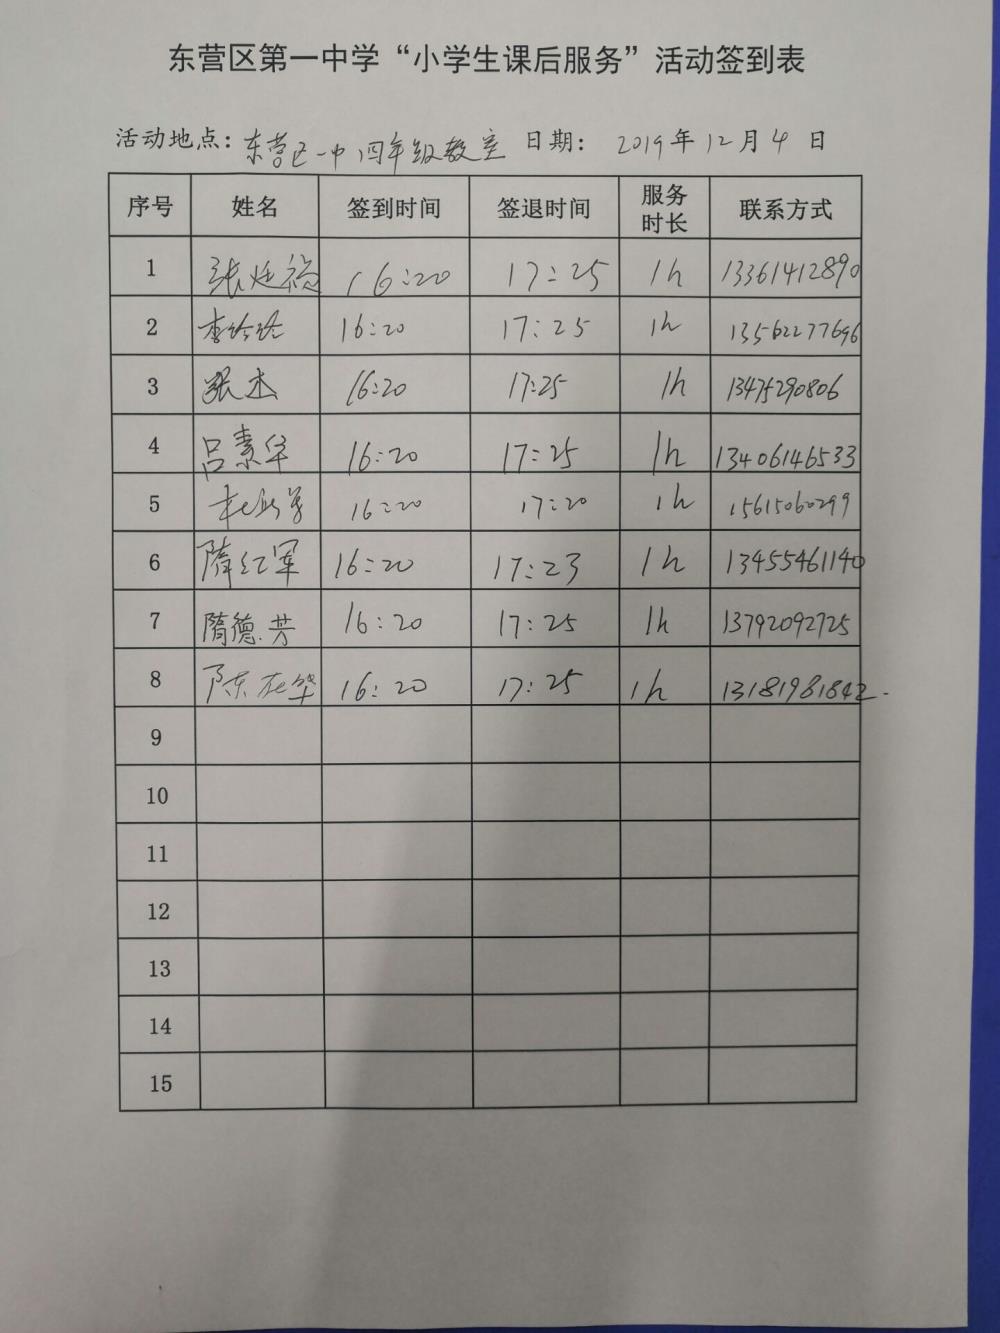 东营区第一中学“小学生课后服务”活动签到表
活动地点：东营区一中四年级教室 日期： 2019年12月4日
序号 姓名 签到时间 签退时间 服务时长 联系方式
1 张廷福 16:20 17:25 1h 13361412890
2 李玲玲 16:20 17:25 1h 13562277696
3 张杰 16:20 17:25 1h 13475290806
4 吕素华 16:20 17:25 1h 13406146533
5 16:20 17:20 1h 15615060299
6 隋红军 16:20 17:23 1h 13455461140
7 隋德芳 16:20 17:25 1h 13792092725
8 陈在华 16:20 17:25 1h 13181981842
9
10
11
12
13
14
15